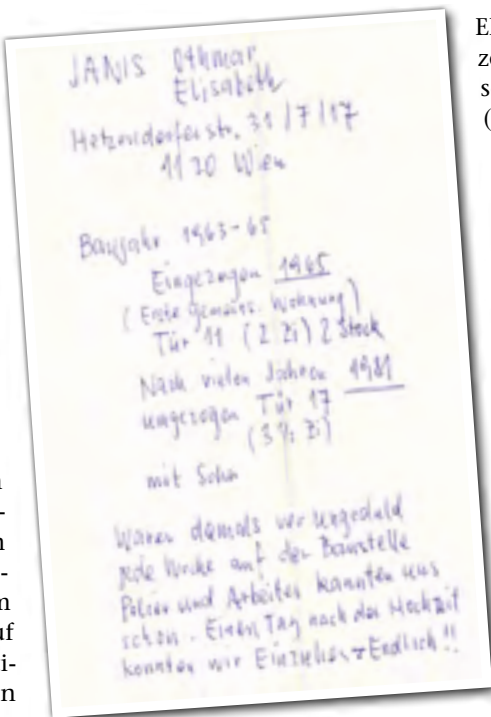 JANIS Othmar
Elisabeth
Hetzendorferstr. 31/7/17
1120 Wien
Baujahr 1963-65
Eingezogen 1965
(Erste gemeins. Wohnung)
Tür 11 (2 Zi) 2 Stock
Nach vielen Jahren 1981
umgezogen Tür 17
(3½ Zi)
mit Sohn
Waren damals vor Ungeduld
jede Woche auf der Baustelle
Polier und Arbeiter kannten uns
schon. Einen Tag nach der Hochzeit
konnten wir Einziehen - Endlich!!